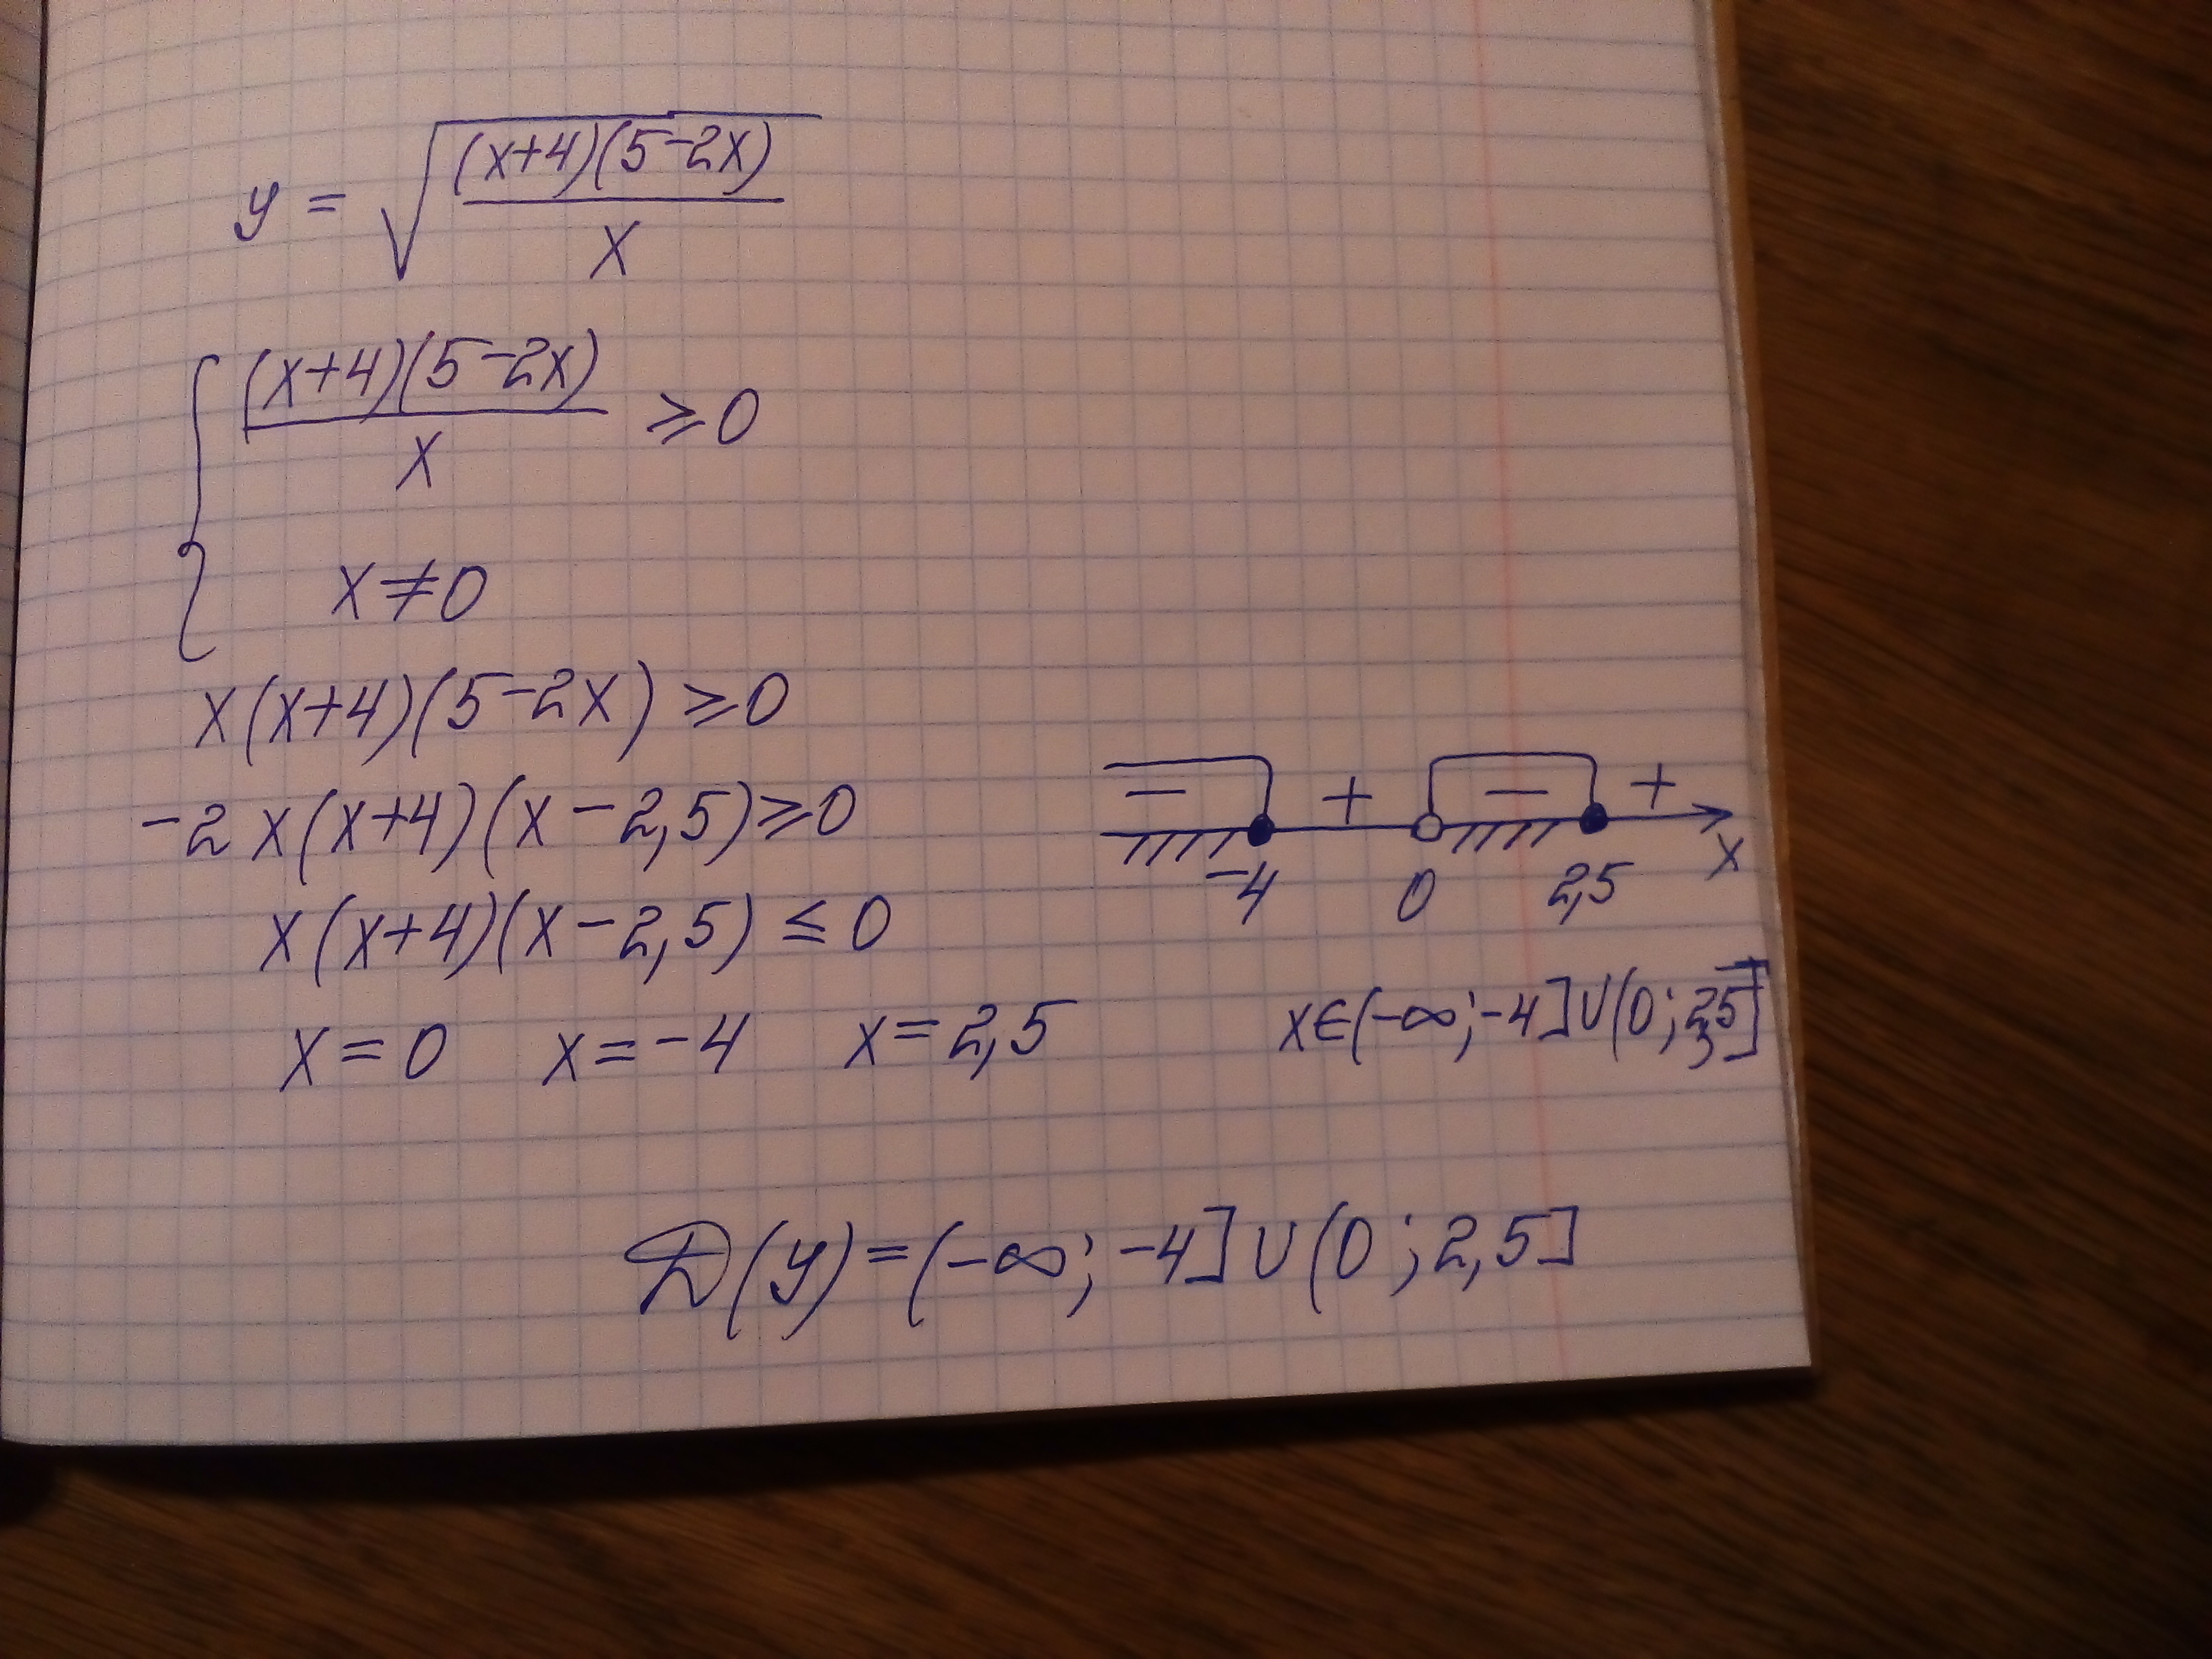 y = √((x+4)(5-2x)/x)
{ (x+4)(5-2x)/x ⩾ 0
x ≠ 0
x(x+4)(5-2x) ⩾ 0
-2x(x+4)(x-2,5) ⩾ 0
x(x+4)(x-2,5) ≤ 0
x=0 x=-4 x=2,5
− + − +
-4 0 2,5 x
x∈(-∞;-4]∪(0;2,5]
D(y)=(-∞;-4]∪(0;2,5]